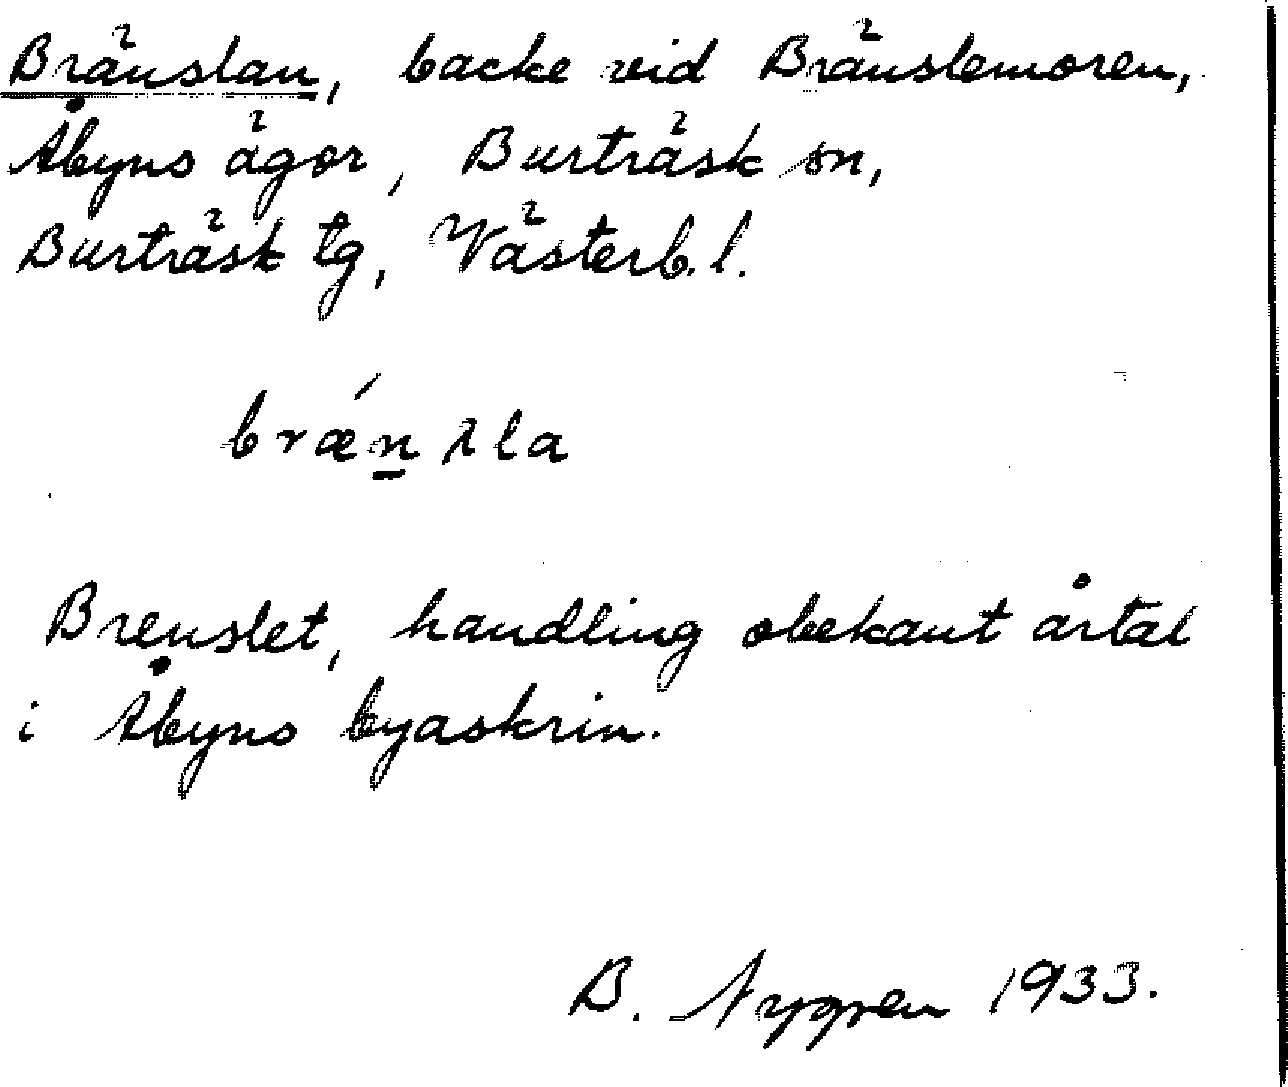 Bränslan, backe vid Bränslemoren,
Åbyns ägor, Burträsk sn,
Burträsk tg, Västerb. l.
brǽnsla
Brenslet, handling obekant årtal
i Åbyns byaskrin.
B. Nygren 1933.